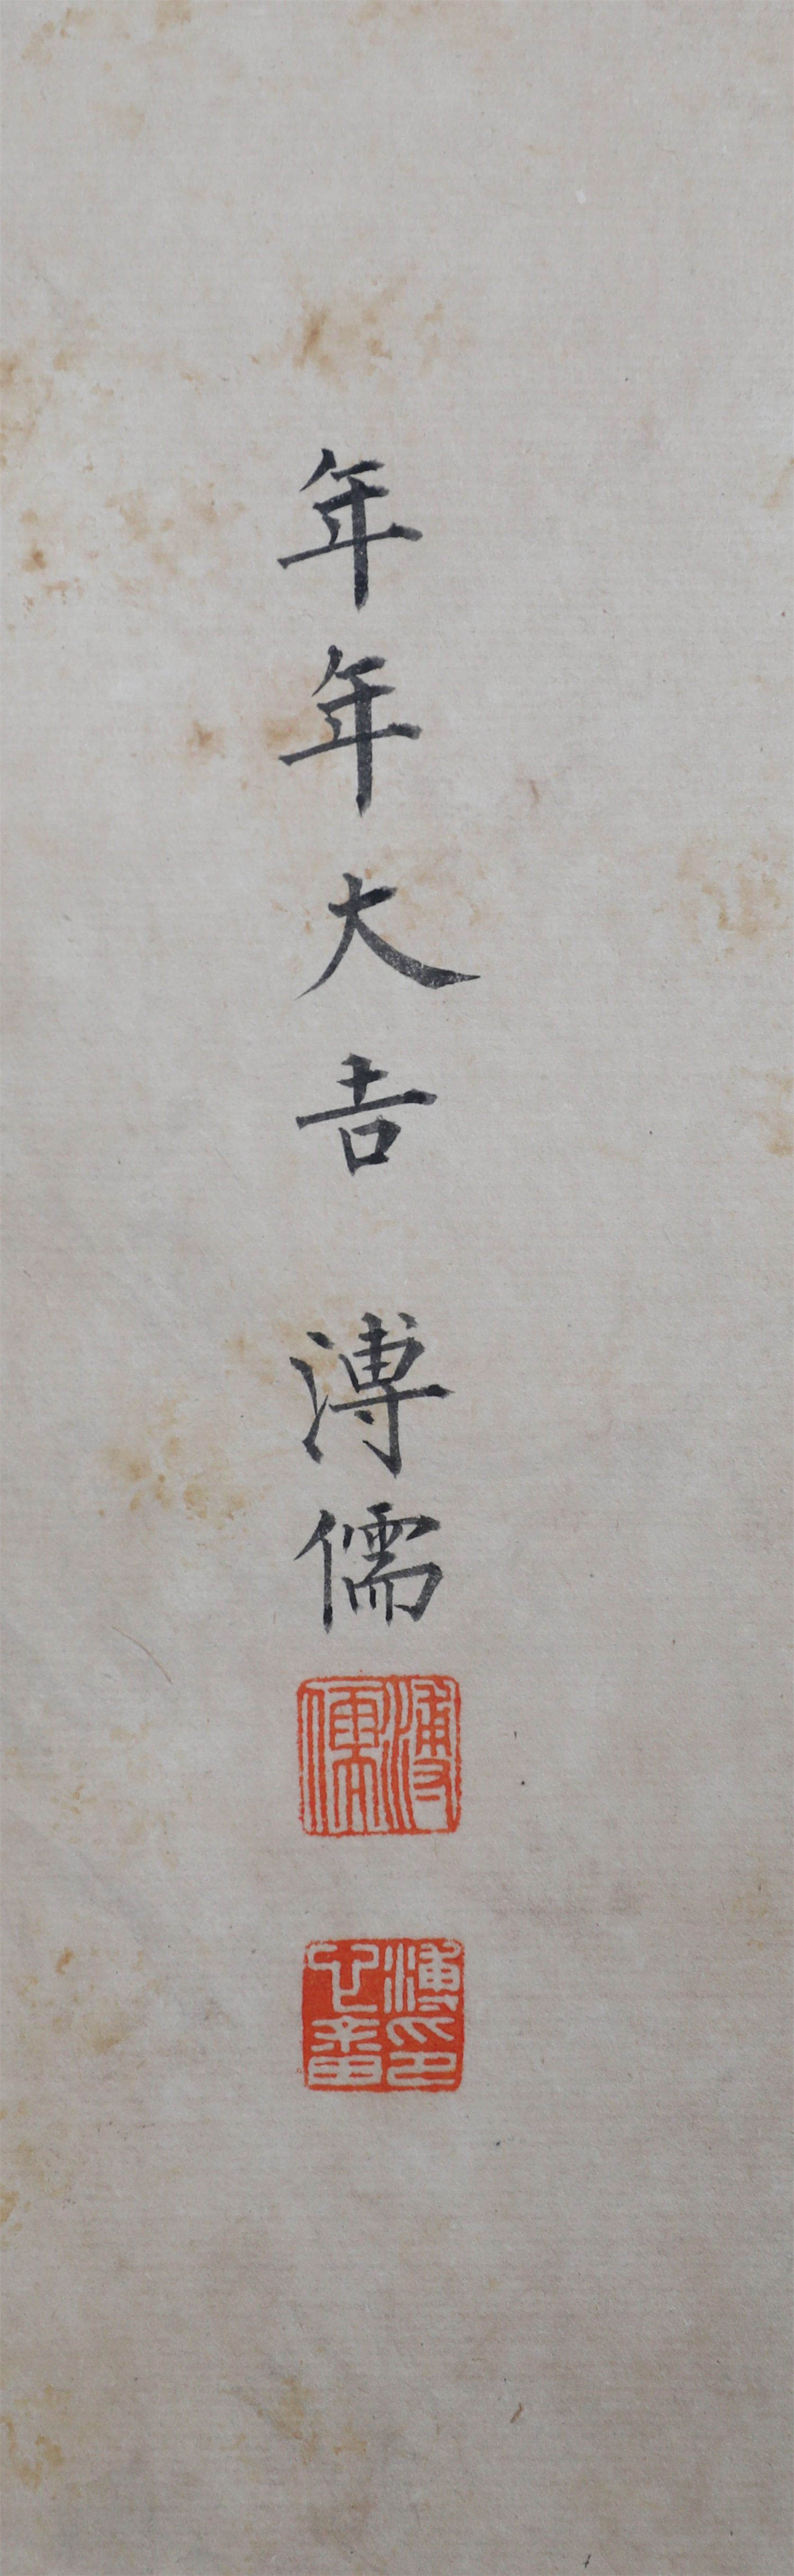 年年大吉 溥儒
溥儒
溥印心畬